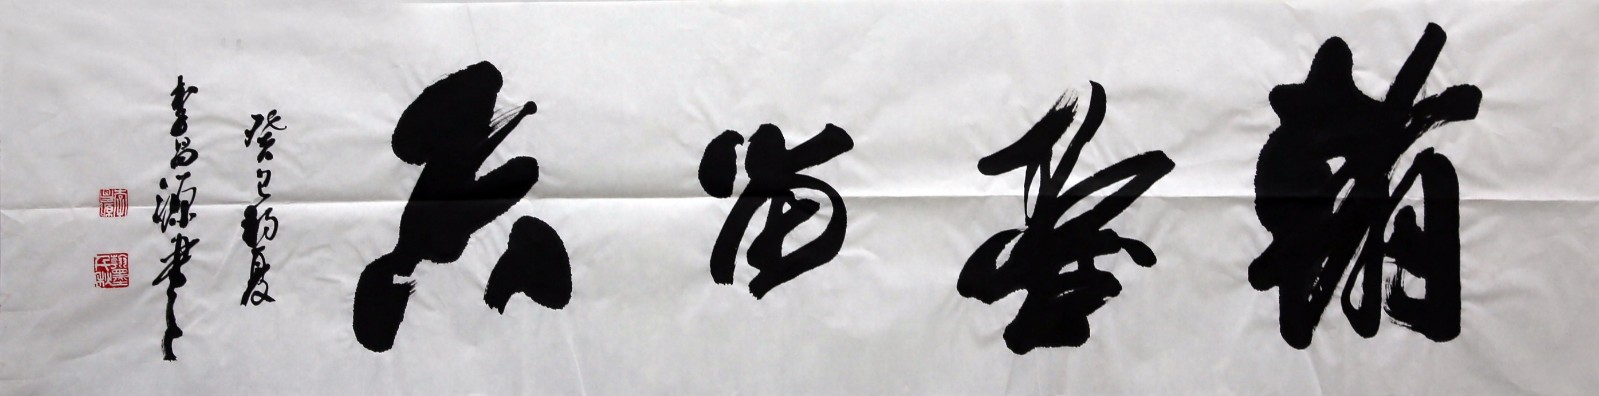 翰墨留香
癸巳初夏
李昌源书